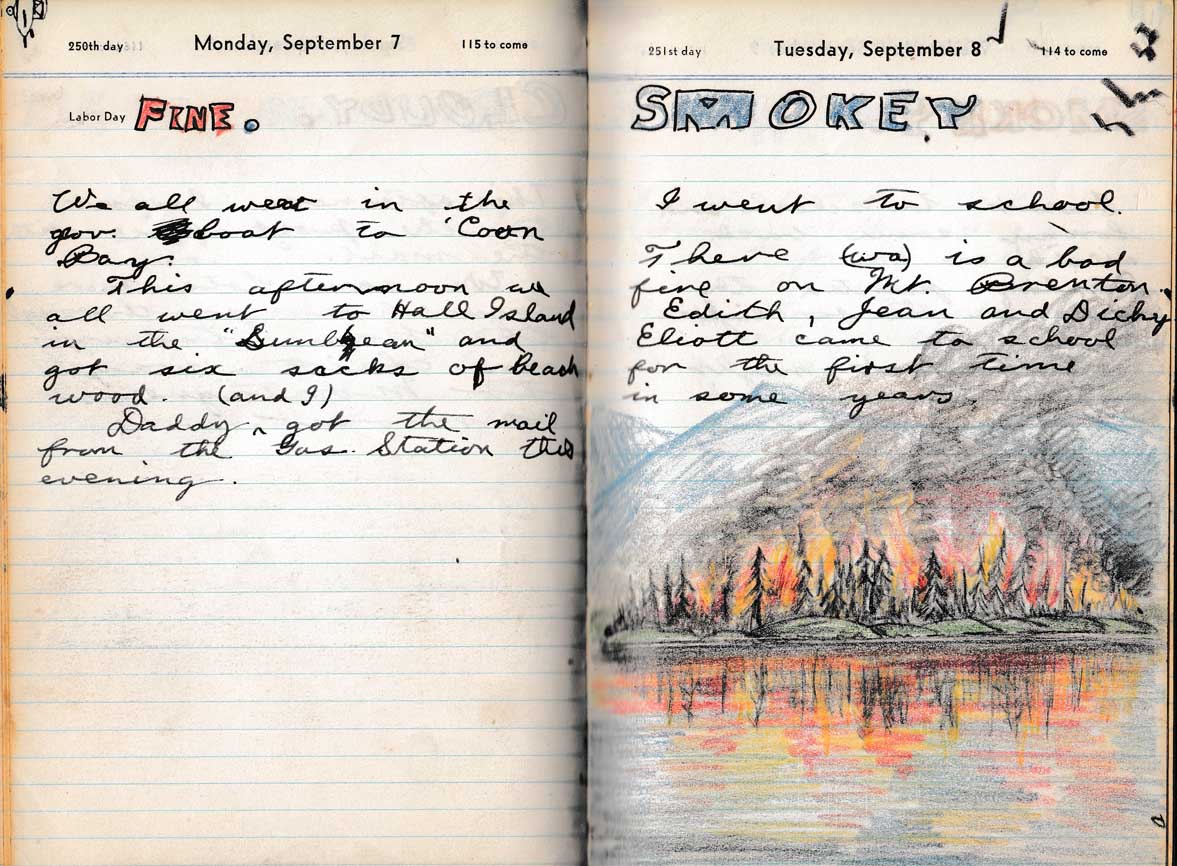 250th day Monday, September 7 115 to come
Labor Day FINE.
We all went in the
gov. boat to 'Coon
Bay.
This afternoon we
all went to Hall Island
in the "Sunbeam" and
got six sacks of beach
wood. (and I)
Daddy ^ got the mail
from the Gas. Station this
evening.
251st day Tuesday, September 8 114 to come
SMOKEY
I went to school.
There (wa) is a bad
fire on Mt. Brenton.
Edith, Jean and Dicky
Eliott came to school
for the first time
in some years.